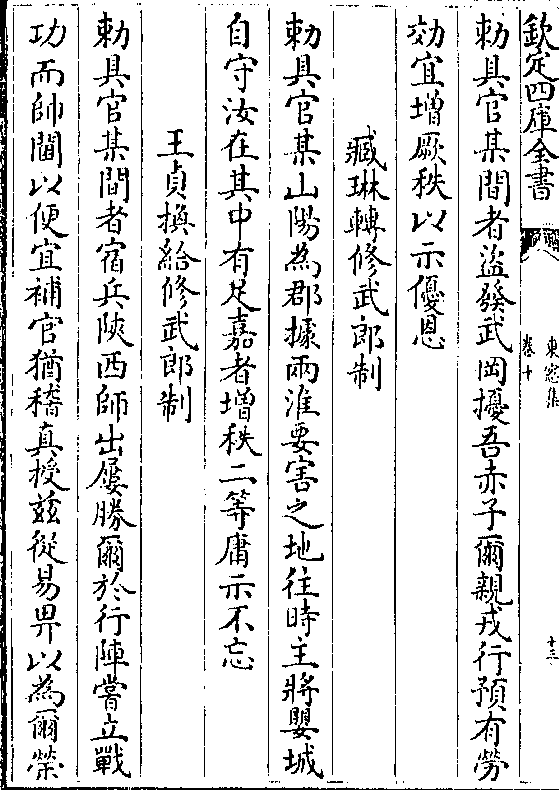 欽定四庫全書
東窓集
卷十
十三
勅具官某間者盜發武岡擾吾赤子爾親戎行預有勞
効宜增厥秩以示優恩
臧琳轉修武郎制
勅具官某山陽為郡據兩淮要害之地往時主將嬰城
自守汝在其中有足嘉者增秩二等庸示不忘
王貞換給修武郎制
勅具官某間者宿兵陜西師出屢勝爾於行陣嘗立戰
功而帥閫以便宜補官猶稽真授兹從易畀以為爾榮